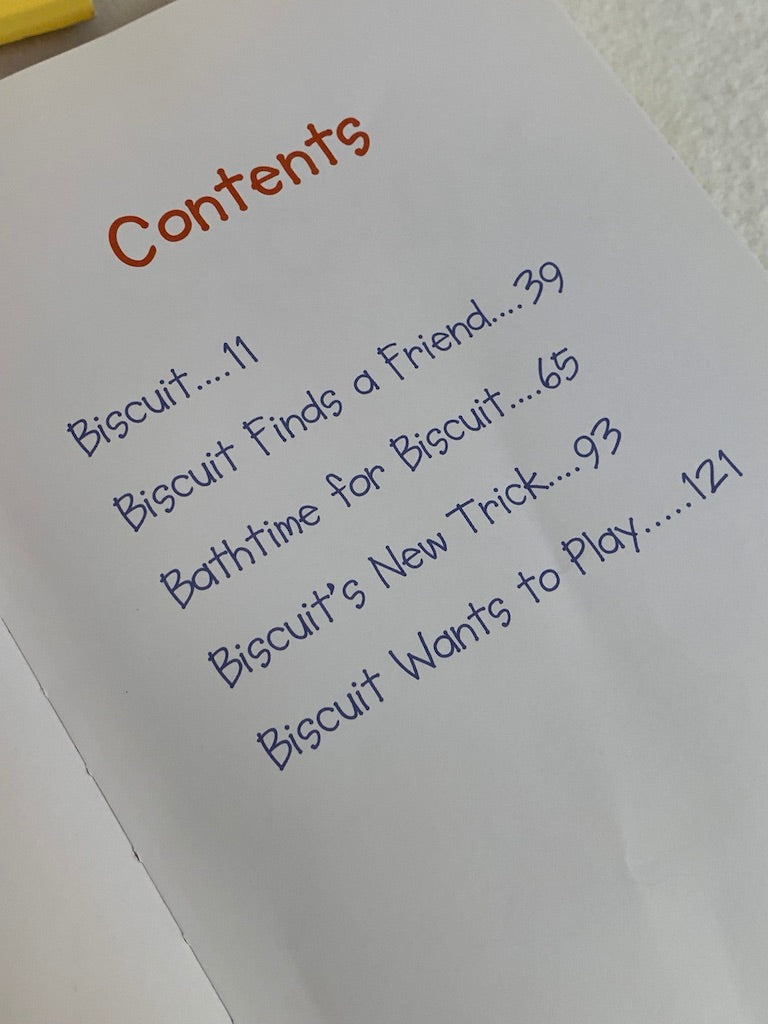 Contents
Biscuit....11
Biscuit Finds a Friend....39
Bathtime for Biscuit....65
Biscuit's New Trick....93
Biscuit Wants to Play.....121